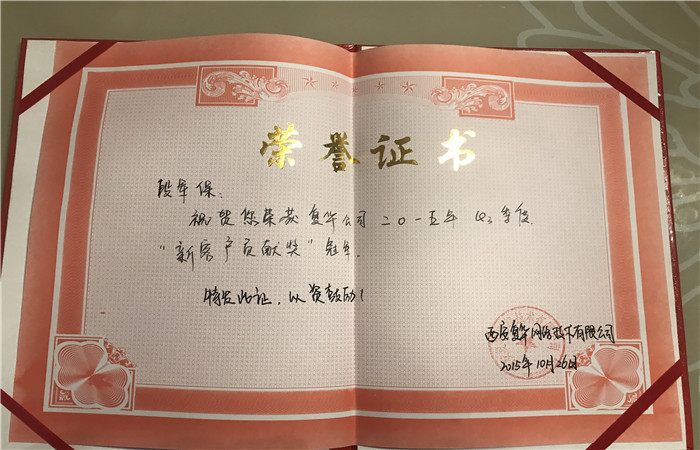 荣誉证书
段军保：
祝贺您荣获复华公司二〇一五年 Q3 季度
“新客户贡献奖”冠军。
特发此证，以资鼓励！
西安复华网络技术有限公司
2015年10月26日